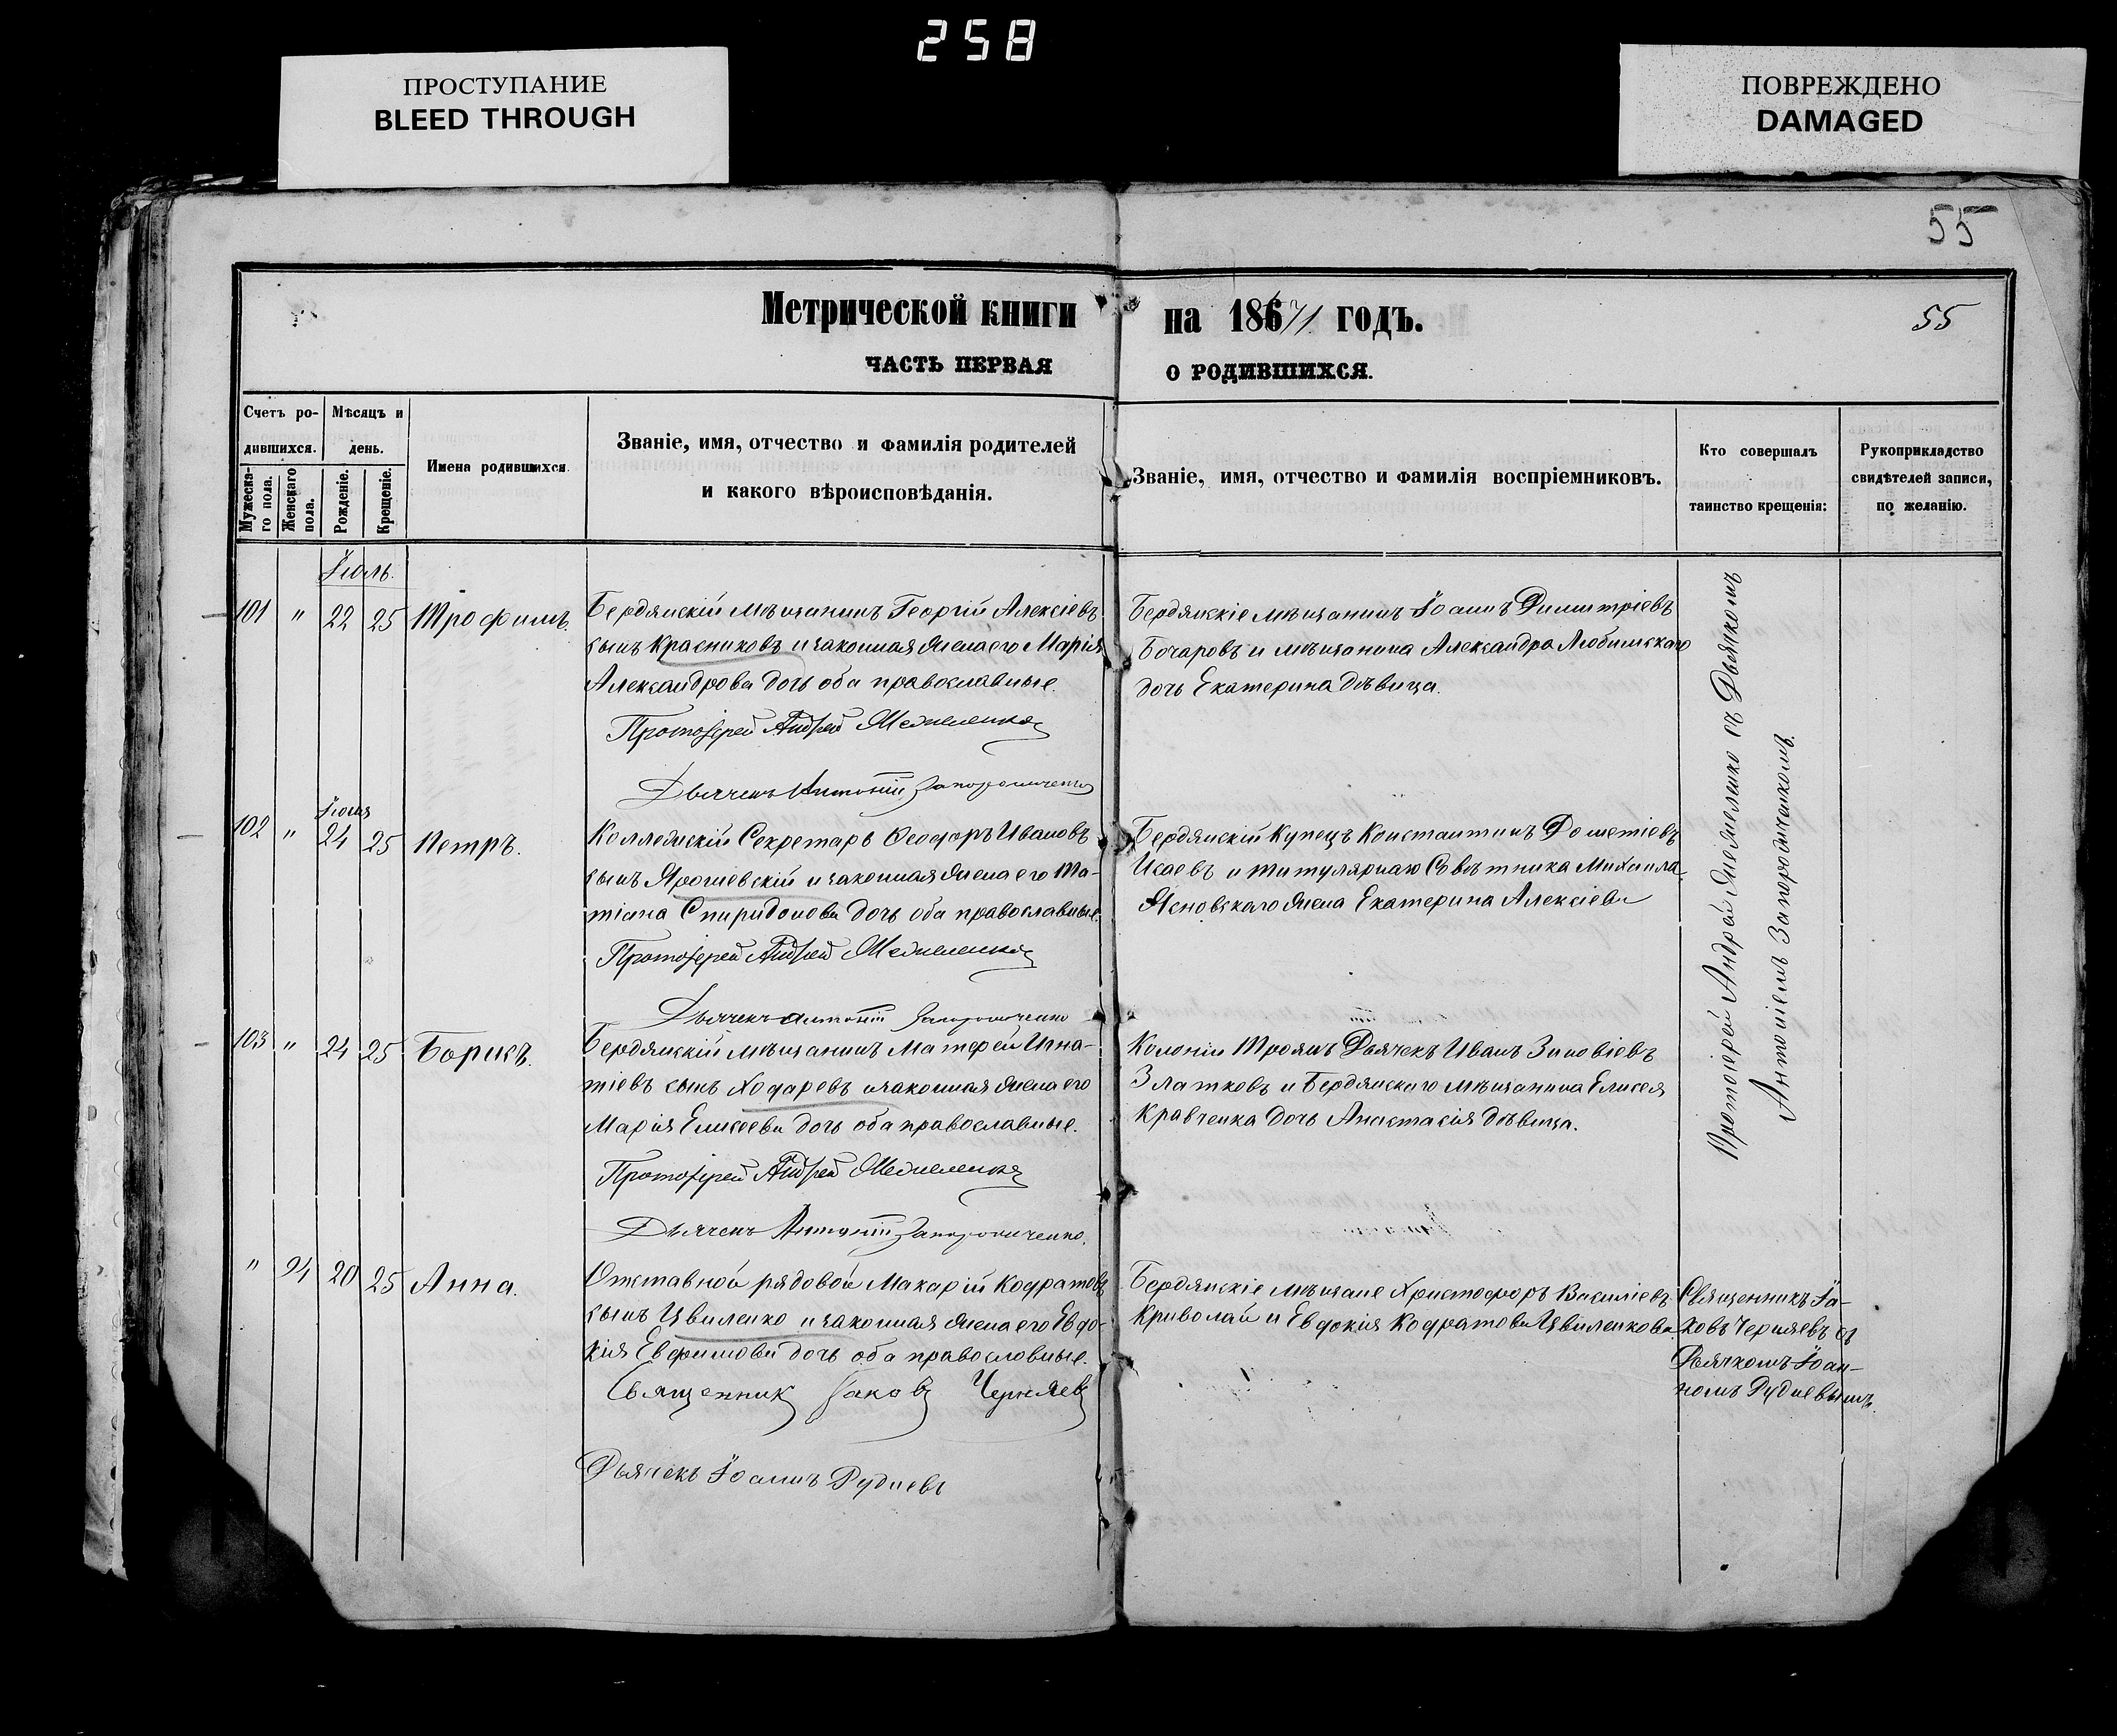 258
ПРОСТУПАНИЕ
BLEED THROUGH
ПОВРЕЖДЕНО
DAMAGED
55
Метрической книги на 18671 годъ.
55
ЧАСТЬ ПЕРВАЯ О РОДИВШИХСЯ.
Счетъ ро-
дившихся.
Мѣсяцъ и
день.
Мужеска-
го пола.
Женскаго
пола.
Рожденіе.
Крещеніе.
Имена родившихся.
Званіе, имя, отчество и фамилія родителей
и какого вѣроисповѣданія.
Званіе, имя, отчество и фамилія воспріемниковъ.
Кто совершалъ
таинство крещенія:
Рукоприкладство
свидѣтелей записи,
по желанію.
Іюль.
101 " 22 25 Трофимъ.
Бердянскій мѣщанинъ Георгій Алексіевъ
сынъ Красниковъ и законная жена его Марія
Александрова дочь оба православные.
Протоіерей Андрей
Дьячекъ Антоній Запорожченко
Бердянскіе мѣщанинъ Іоаннъ Димитріевъ
Бочаровъ и мѣщанина Александра Любимскаго
дочь Екатерина дѣвица.
Протоіерей Андрей съ Дьячкомъ
Антоніемъ Запорожченкомъ.
Іюля
102 " 24 25 Петръ.
Коллежскій Секретарь Ѳеодоръ Ивановъ
сынъ Ярошевскій и законная жена его Та-
тіана Спиридонова дочь оба православные.
Протоіерей Андрей
Дьячекъ Антоній Запорожченко
Бердянскій Купецъ Константинъ
Исаевъ и титулярнаго Совѣтника Михаила
Ясновскаго жена Екатерина Алексіева
103 " 24 25 Борисъ.
Бердянскій мѣщанинъ Матфей Игна-
тіевъ сынъ Ходаревъ и законная жена его
Марія Елисеева дочь оба православные.
Протоіерей Андрей
Дьячекъ Антоній Запорожченко.
Колоніи Троянъ Дьячекъ Иванъ Зиновіевъ
Златковъ и Бердянскаго мѣщанина Елисея
Кравченка дочь Анастасія дѣвица.
" 94 20 25 Анна.
Отставной рядовой Макарій Кодратовъ
сынъ Цвиленко и законная жена его Евдо-
кія Евфимова дочь оба православные.
Священник Іаковъ Черняевъ
Дьячекъ Іоаннъ Рудневъ
Бердянскіе мѣщане Христофоръ Василіевъ
Криволай и Евдокія Кодратова Цвиленкова.
Священникъ Іа-
ковъ Черняевъ съ
Дьячкомъ Іоан-
номъ Рудневымъ.